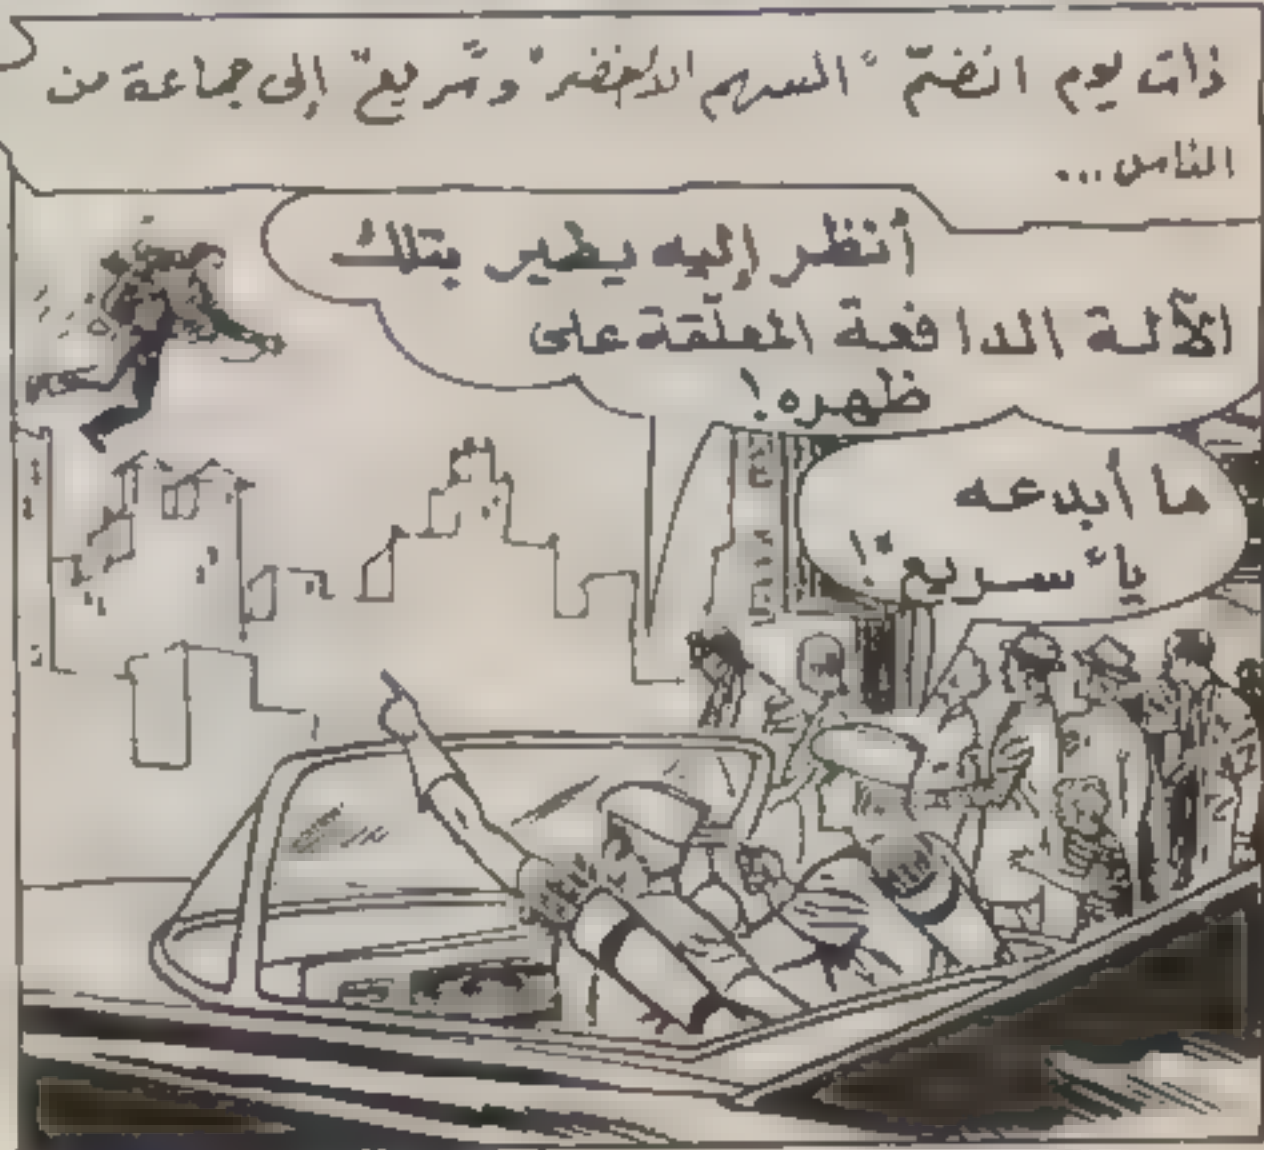 ذات يوم انضمّ "السهم الأخضر" و"سريع" إلى جماعة من
الناس...
أنظر إليه يطير بتلك
الآلة الدافعة المعلّقة على
ظهره!
ما أبدعه
يا "سريع"!